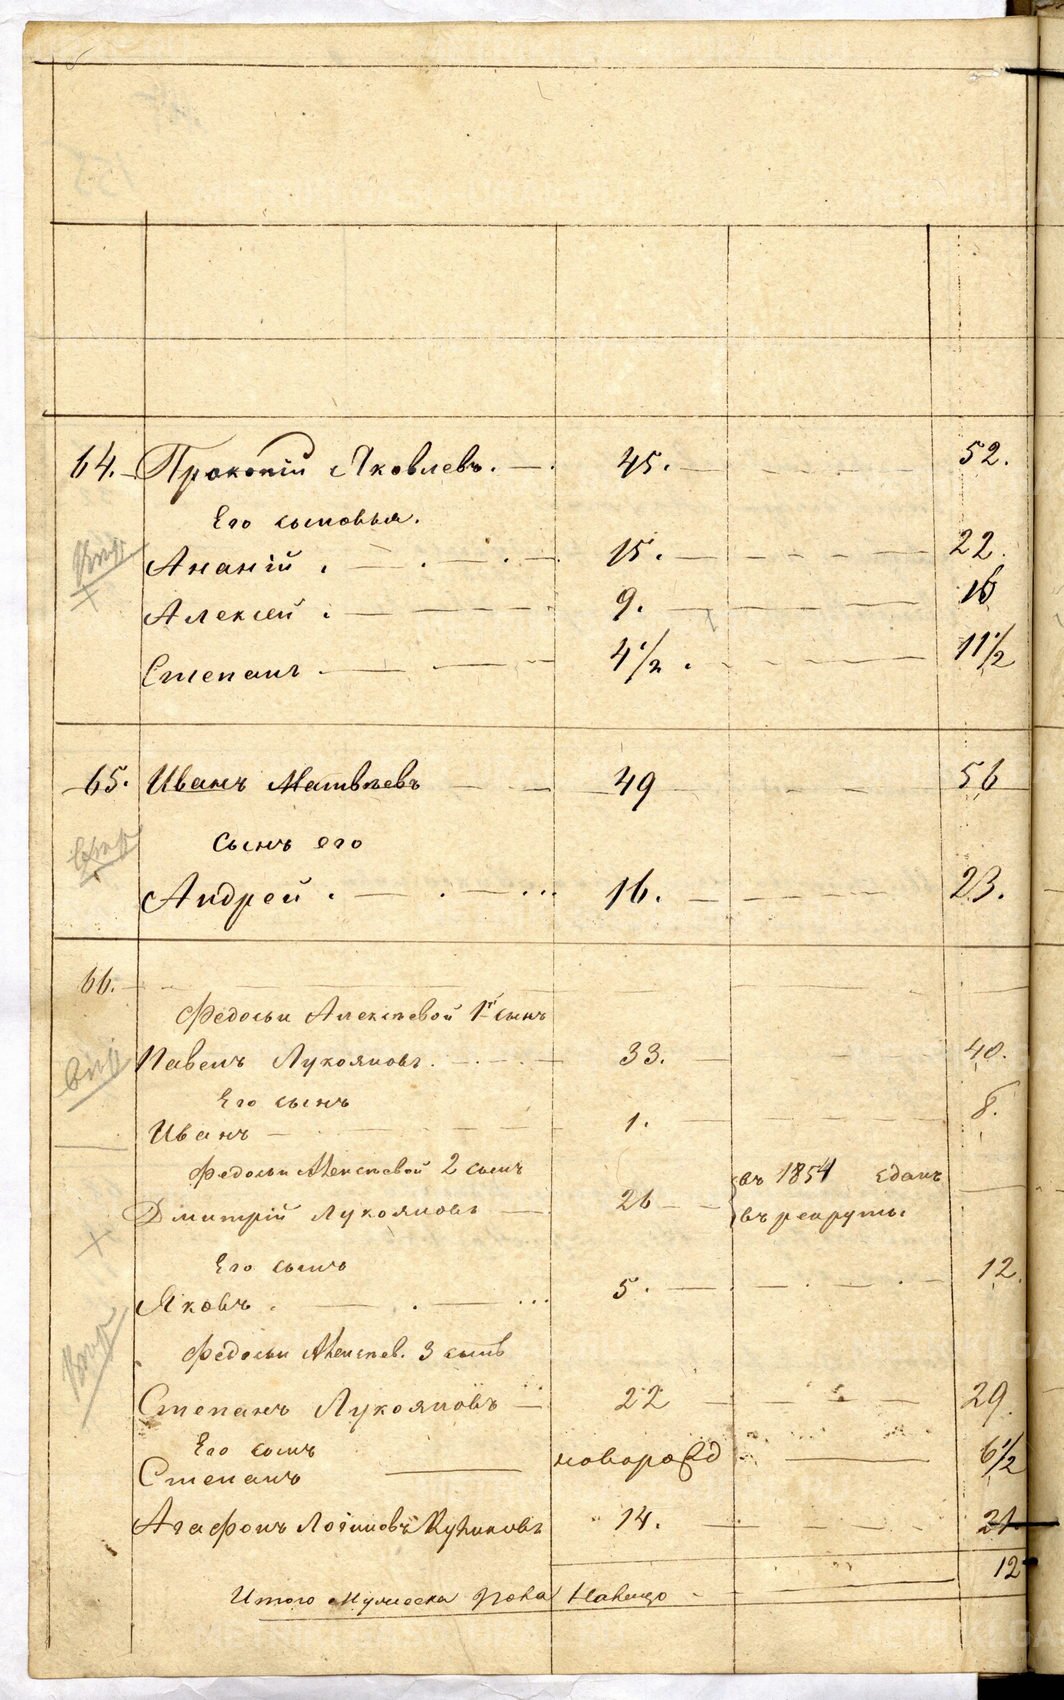 64. Прокопій Яковлевъ. 45. 52.
Его сыновья.
Ананій 15. 22.
Алексѣй 9. 16
Степанъ 4 1/2. 11 1/2
65. Иванъ Матвѣевъ 49 56
Сынъ его
Андрей 16. 23.
66.
Федосьи Алексѣевой 1й сынъ
Павелъ Лукояновъ. 33. 40.
Его сынъ
Иванъ 1. 8.
Федосьи Алексѣевой 2 сынъ
въ 1854 сданъ
Дмитрій Лукояновъ 26 въ рекруты
Его сынъ
Яковъ 5. 12.
Федосьи Алексѣев. 3 сынъ
Степанъ Лукояновъ 22 29.
Его сынъ
Степанъ новорожд 6 1/2
Агафонъ Логиновъ 14. 21
12
Итого мужеска пола налицо